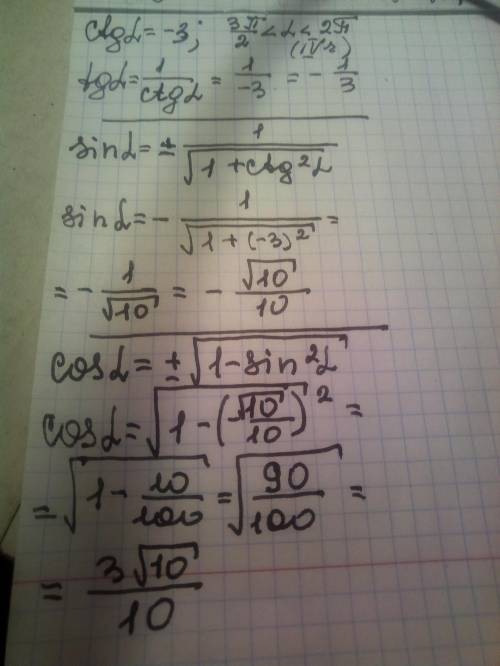 ctgα = -3; 3π/2 < α < 2π
(IV ч)
tgα = 1/ctgα = 1/-3 = -1/3
sinα = ± 1/√(1+ctg²α)
sinα = - 1/√(1+(-3)²) =
= - 1/√10 = - √10/10
cosα = ± √(1-sin²α)
cosα = √(1-(√10/10)²) =
= √(1-10/100) = √(90/100) =
= 3√10/10